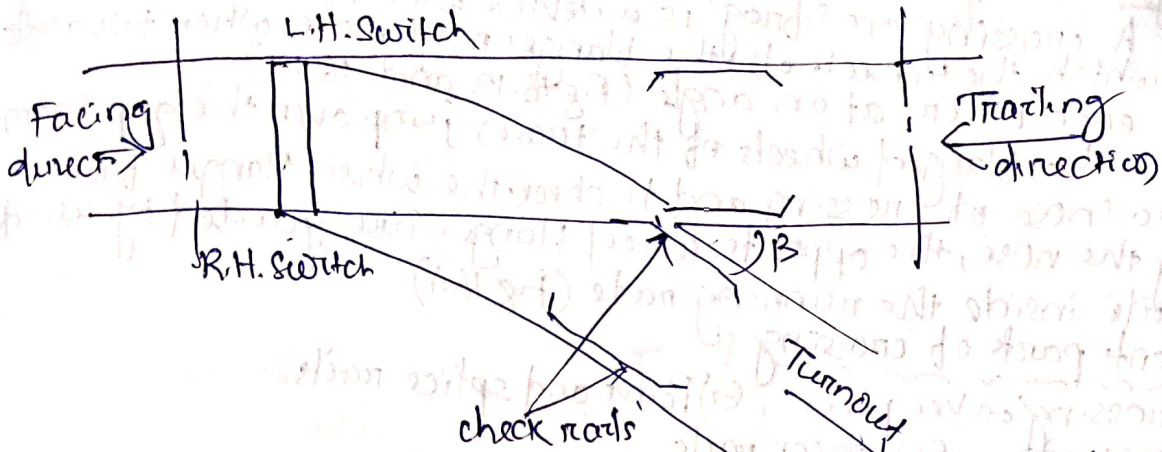 L.H. Switch
Facing
direct
Trailing
direction
R.H. Switch
β
Turnout
check rails